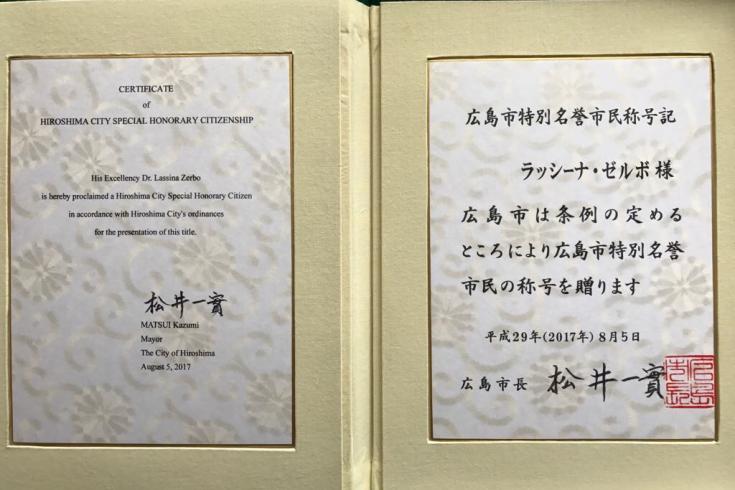 CERTIFICATE
of
HIROSHIMA CITY SPECIAL HONORARY CITIZENSHIP
His Excellency Dr. Lassina Zerbo
is hereby proclaimed a Hiroshima City Special Honorary Citizen
in accordance with Hiroshima City's ordinances
for the presentation of this title.
松井一實
MATSUI Kazumi
Mayor
The City of Hiroshima
August 5, 2017
広島市特別名誉市民称号記
ラッシーナ・ゼルボ様
広島市は条例の定める
ところにより広島市特別名誉
市民の称号を贈ります
平成29年(2017年)8月5日
広島市長 松井一實